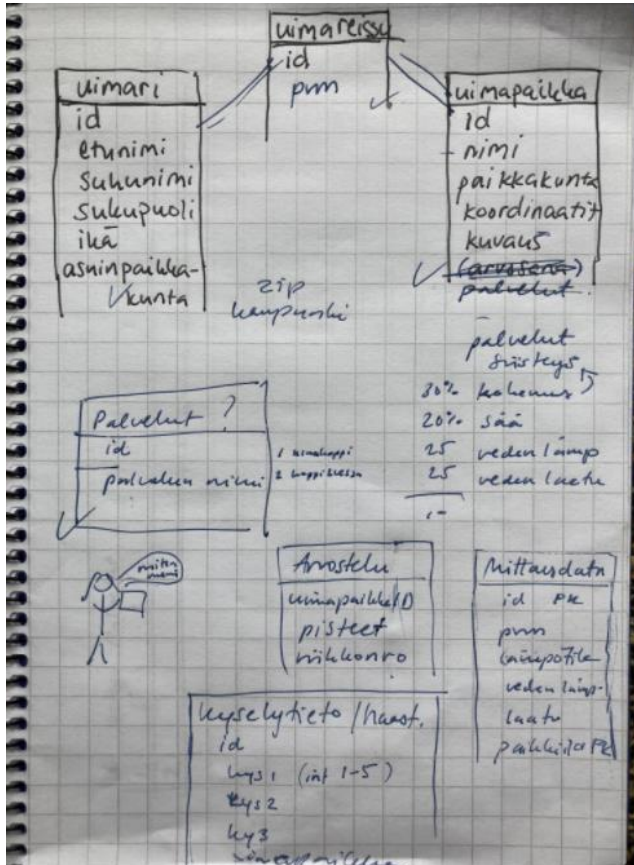 uimareissu
id
pvm
uimari
id
etunimi
sukunimi
sukupuoli
ikä
asuinpaikka-
kunta
uimapaikka
id
nimi
paikkakunta
koordinaatit
kuvaus
(arvosana)
palvelut
zip
kaupunki
palvelut
siisteys
30% kokemus
20% sää
25 veden lämp
25 veden laatu
Palvelut ?
id
palvelun nimi
miten
meni
Arvostelu
uimapaikkaID
pisteet
viikkonro
Mittausdata
id PK
pvm
lämpötila
veden lämp.
laatu
kyselytieto/haast.
id
kys1 (int 1-5)
kys2
ky3
uimapaikka